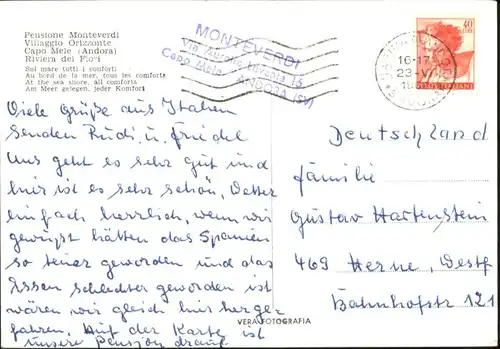 Pensione Monteverdi
Villaggio Orizzonte
Capo Mele (Andora)
Riviera dei Fiori
Sul mare tutti i comforti
Au bord de la mer, tous les comforts
At the sea shore, all comforts
Am Meer gelegen, jeder Komfort
MONTEVERDI
Via Aurelia 15
Capo Mele - ANDORA (SV)
16-17
23-VI
40
POSTE ITALIANE
Viele Grüße aus Italien
senden Rudi u. Friedel
Uns geht es sehr gut und
hier ist es sehr schön, Wetter
einfach herrlich, wenn wir
gewußt hätten das Spanien
so teuer geworden und das
Essen schlechter geworden ist
wären wir gleich hier herge-
fahren. Auf der Karte ist
unsere Pension drauf
VERA FOTOGRAFIA
Deutschland
Familie
Gustav Hartenstein
469 Herne, Westf
Bahnhofstr 121